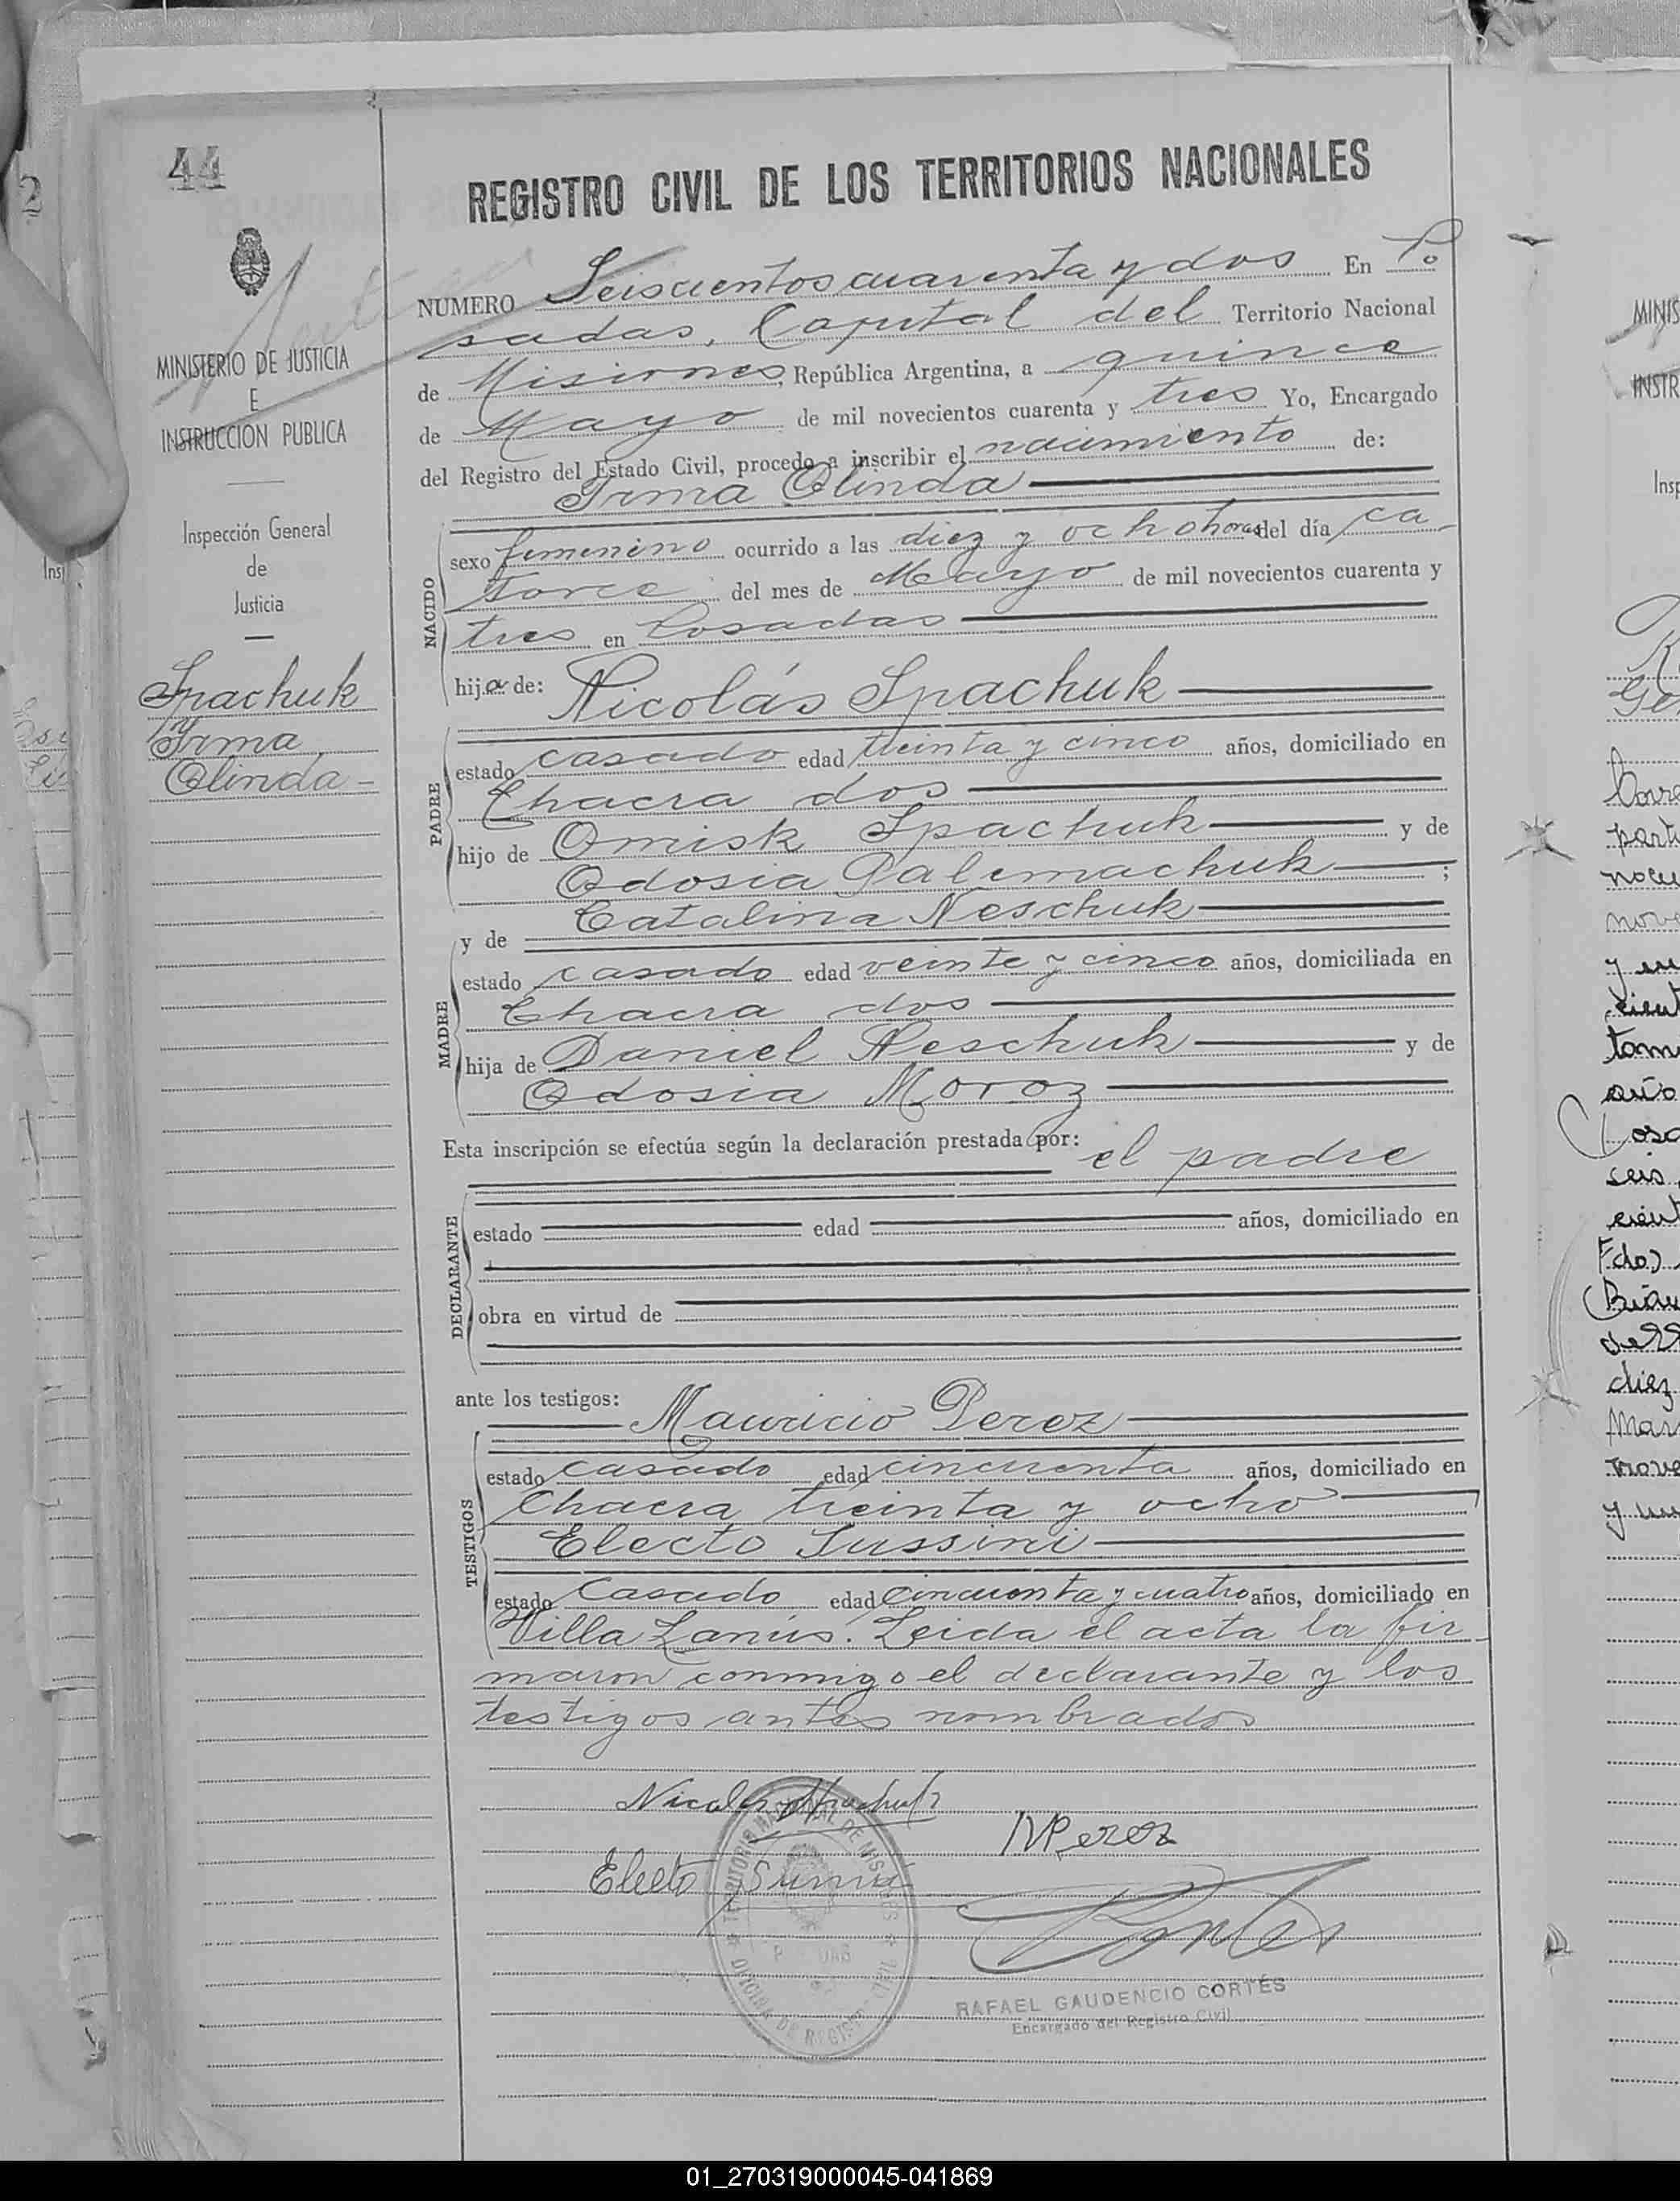 44
REGISTRO CIVIL DE LOS TERRITORIOS NACIONALES
NUMERO Seiscientos cuarenta y dos En Po
sadas, Capital del Territorio Nacional
de Misiones, República Argentina, a quince
de Mayo de mil novecientos cuarenta y tres Yo, Encargado
del Registro del Estado Civil, procedo a inscribir el nacimiento de:
Irma Olinda
sexo femenino ocurrido a las diez y ocho horas del día ca-
torce del mes de Mayo de mil novecientos cuarenta y
tres en Posadas
NACIDO
hija de: Nicolás Spachuk
estado casado edad treinta y cinco años, domiciliado en
Chacra dos
PADRE
hijo de Omisk Spachuk y de
Odosia Palimachuk ;
y de Catalina Neschuk
estado casado edad veinte y cinco años, domiciliada en
Chacra dos
MADRE
hija de Daniel Neschuk y de
Odosia Moroz
Esta inscripción se efectúa según la declaración prestada por: el padre
estado edad años, domiciliado en
DECLARANTE
obra en virtud de
ante los testigos: Mauricio Perez
estado casado edad cincuenta años, domiciliado en
Chacra treinta y ocho
TESTIGOS
Electo Sussini
estado Casado edad cincuenta y cuatro años, domiciliado en
Villa Lanús. Leida el acta la fir-
maron conmigo el declarante y los
testigos antes nombrados
MINISTERIO DE JUSTICIA
E
INSTRUCCION PUBLICA
Inspección General
de
Justicia
Spachuk
Irma
Olinda-
Nicolas Spachuk
MPerez
Electo Sussini
TERRITORIO NACIONAL DE MISIONES
OFICINA DE REGISTRO CIVIL
RAFAEL GAUDENCIO CORTÉS
Encargado del Registro Civil
MINIS
INSTR
Insp
01_270319000045-041869